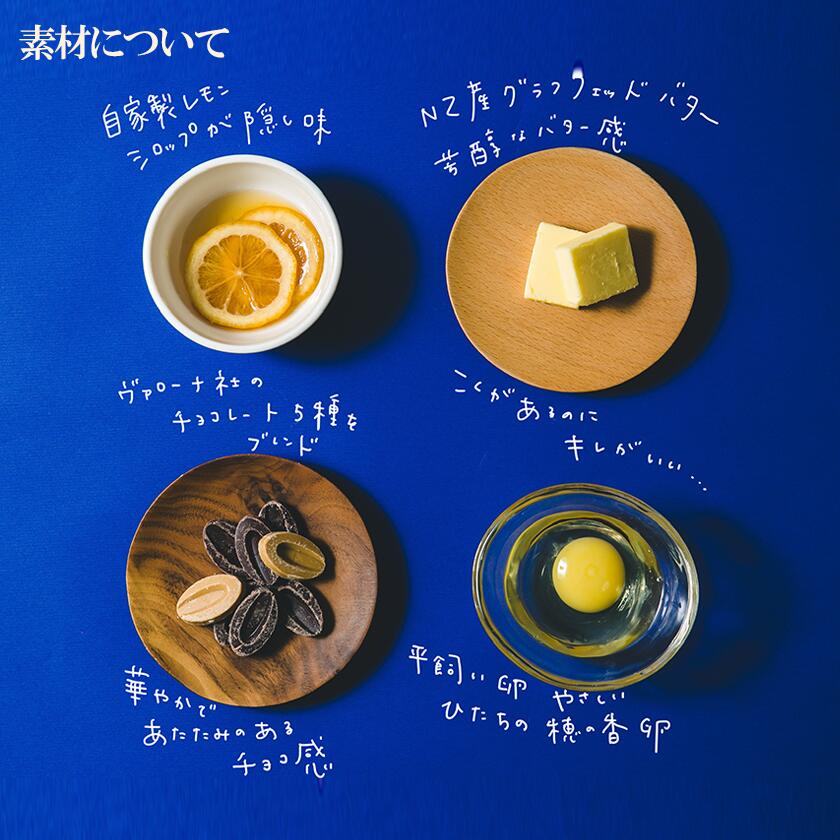 素材について
自家製レモン
シロップが隠し味
NZ産グラフフェッドバター
芳醇なバター感
ヴァローナ社の
チョコレート5種を
ブレンド
こくがあるのに
キレがいい...
華やかで
あたたみのある
チョコ感
平飼い卵 やさしい
ひたちの穂の香卵